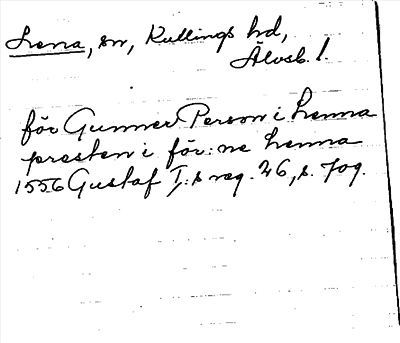 Lena, sn, Kullings hd,
Älvsb. l.
för Gunner Person i Lenna
presten i för: ne Lenna
1556 Gustaf I: s reg. 26, s. 709.